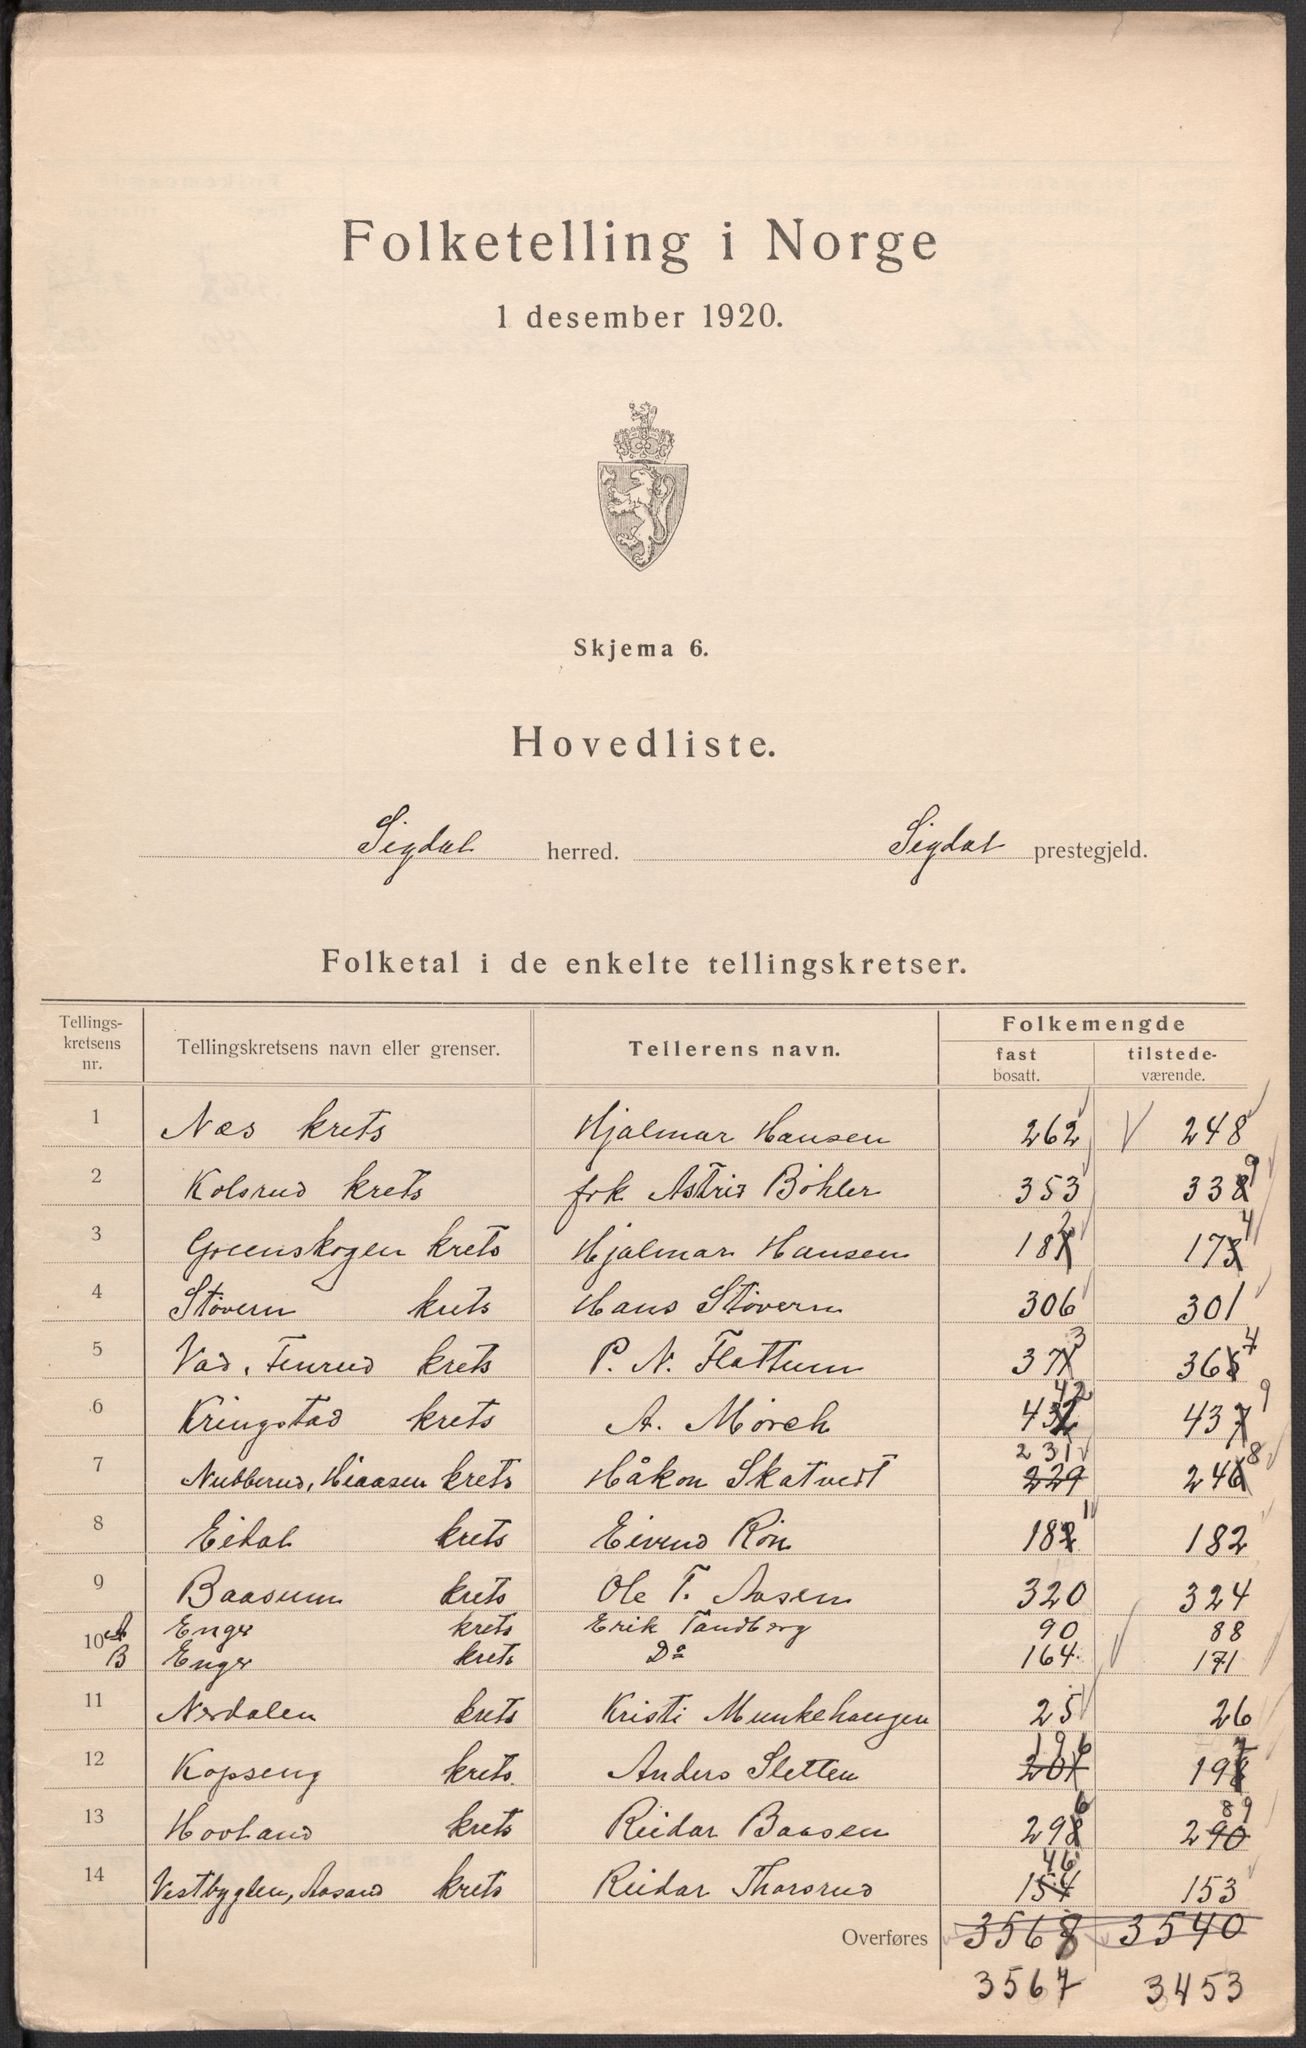 Folketelling i Norge
1 desember 1920.
Skjema 6.
Hovedliste.
Sigdal herred. Sigdal prestegjeld.
Folketal i de enkelte tellingskretser.
Tellings-
kretsens
nr.
Tellingskretsens navn eller grenser.
Tellerens navn.
Folkemengde
fast
bosatt.
tilstede-
værende.
1 Næs krets Hjalmar Hansen 262 248
2 Kolsrud krets frk Astrid Böhler 353 339
3 Greenskogen krets Hjalmar Hansen 182 174
4 Støvern krets Hans Støvern 306 301
5 Vad, Tenrud krets P. N. Flattum 373 364
6 Kringstad krets A. Mörch 442 439
7 Nubberud, Hiaasen krets Håkon Skatvedt 229 231 248
8 Eidal krets Eivind Rön 181 182
9 Baasum krets Ole T. Aasen 320 324
10 A Enger krets Erik Tandberg 90 88
B Enger krets Do 164 171
11 Nerdalen krets Kristi Munkehaugen 25 26
12 Kopseng krets Anders Sletten 196 197
13 Hovland krets Reidar Baasen 296 290 89
14 Vestbygden, Aasand krets Reidar Thorsrud 154 46 153
Overføres 3568 3540
3567 3453